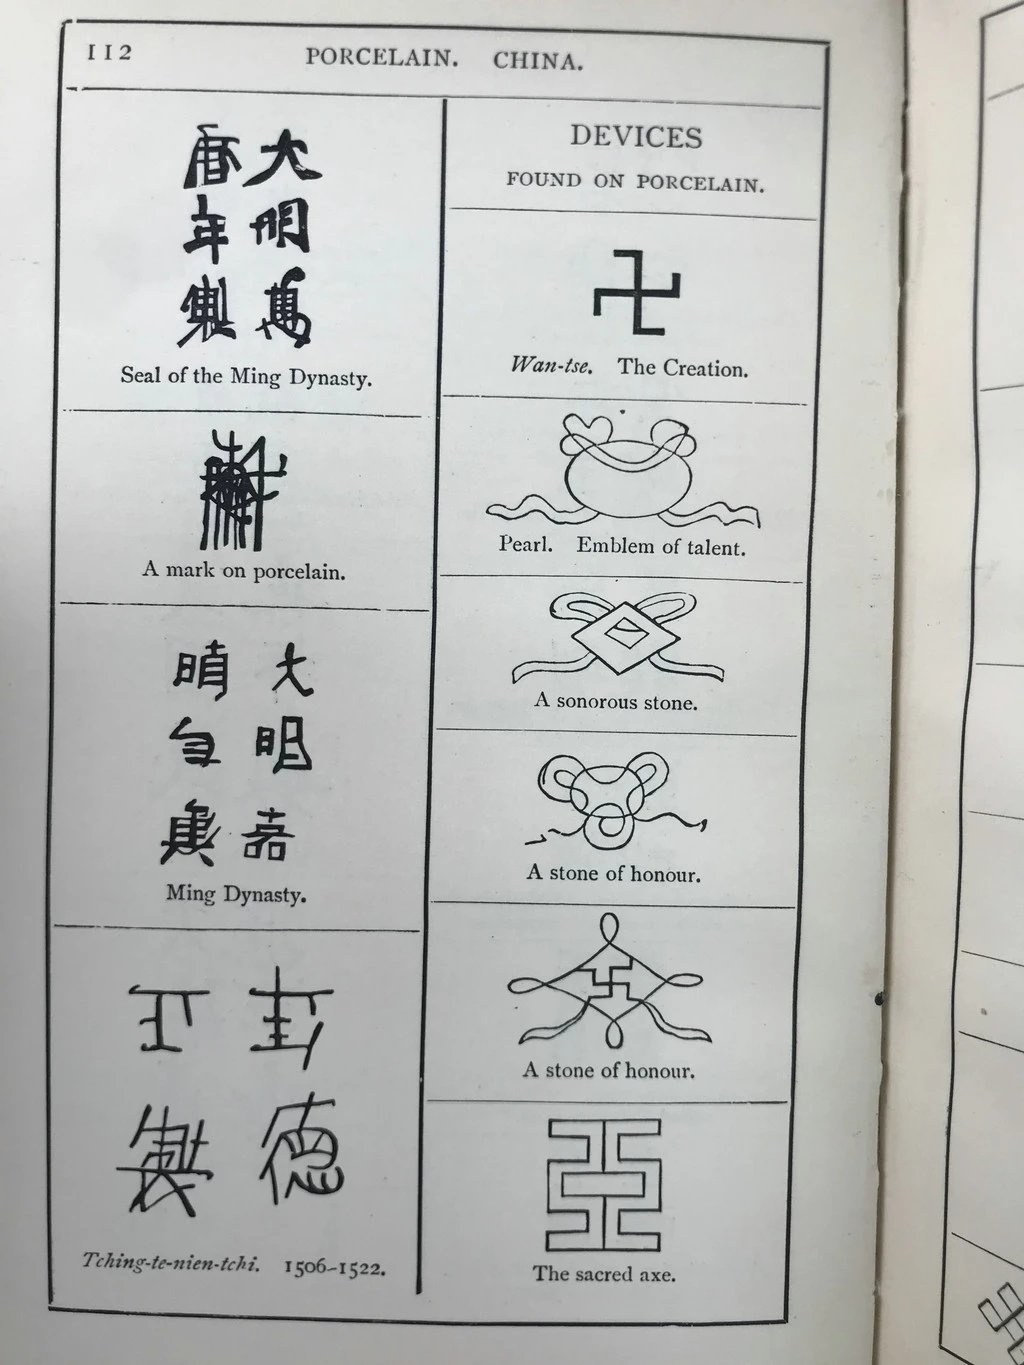 112
PORCELAIN. CHINA.
大明萬
曆年製
Seal of the Ming Dynasty.
A mark on porcelain.
大明嘉
年製
Ming Dynasty.
德
製
Tching-te-nien-tchi. 1506–1522.
DEVICES
FOUND ON PORCELAIN.
卍
Wan-tse. The Creation.
Pearl. Emblem of talent.
A sonorous stone.
A stone of honour.
A stone of honour.
The sacred axe.